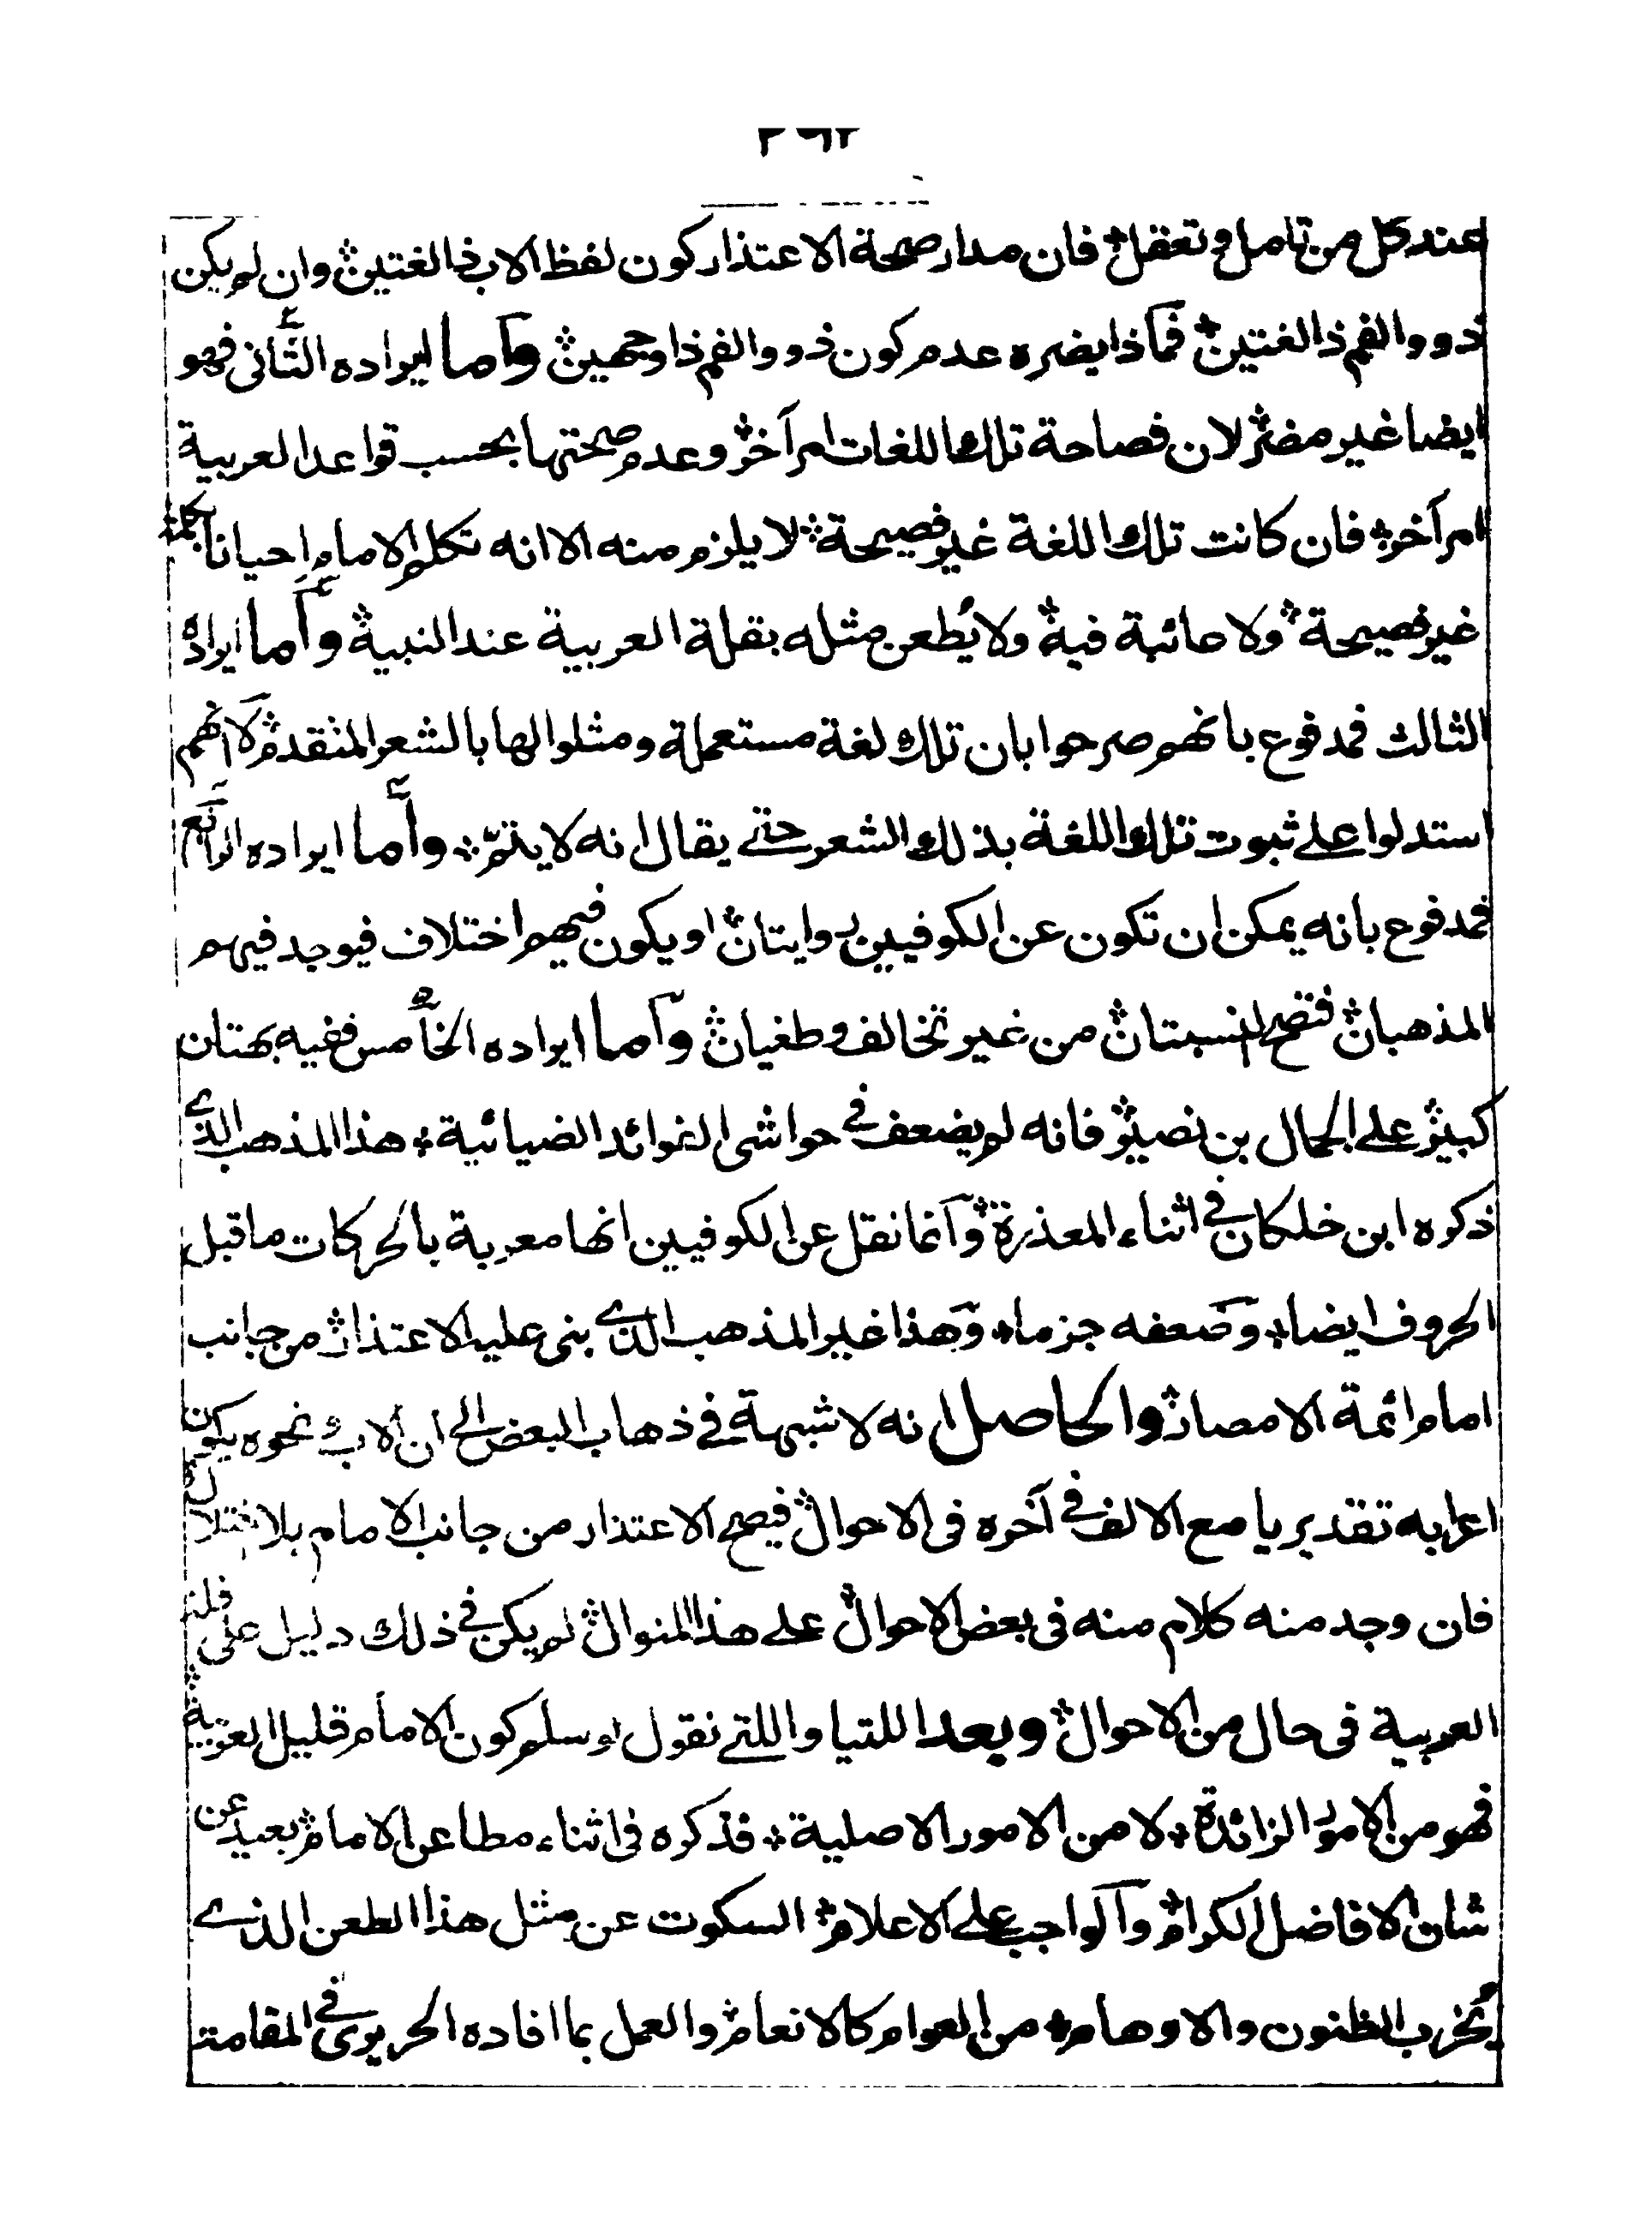 عند كل من تامل وتعقل فان مدار صحة الاعتذار كون لفظ الاب ذا لغتين وان لم يكن
ذو والفم ذا لغتين فماذا يضره عدم كون ذو والفم ذا وجهين وأما ايراده الثانى فهو
ايضا غير مضر لان فصاحة تلك اللغات امر آخر وعدم صحتها بحسب قواعد العربية
امر آخر فان كانت تلك اللغة غير فصيحة لا يلزم منه الا انه تكلم الامام احيانا بكلمة
غير فصيحة ولا عائبة فيه ولا يُطعن مثله بقلة العربية عند النبيه وأما ايراده
الثالث فمدفوع بانهم صرحوا بان تلك لغة مستعملة ومثلوا لها بالشعر المتقدم لا انهم
استدلوا على ثبوت تلك اللغة بذلك الشعر حتے يقال انه لا يتمّ وأما ايراده الرابع
فمدفوع بانه يمكن ان تكون عن الكوفيين روايتان او يكون فيهم اختلاف فيوجد فيهم
المذهبان فتصح النسبتان من غير تخالف وطغيان وأما ايراده الخامس ففيه بهتان
كبير على الجمال بن نصير فانه لم يضعف فے حواشى الفوائد الضيائية هذا المذهب الذے
ذكره ابن خلكان فے اثناء المعذرة وآنما نقل عن الكوفيين انها معربة بالحركات ما قبل
الحروف ايضا وضعفه جزما وهذا غير المذهب الذے بنى عليه الاعتذار من جانب
امام ائمة الامصار والحاصل انه لا شبهة فے ذهاب البعض الى ان الاب ونحوه يكون
اعرابه تقديريا مع الالف فے آخره فى الاحوال فيصح الاعتذار من جانب الامام بلا اختلال
فان وجد منه كلام منه فى بعض الاحوال على هذا المنوال لم يكن فے ذلك دليل على قلة
العربية فى حال من الاحوال وبعد اللتيا واللتے نقول لو سلم كون الامام قليل العربية
فهو من الامور الزائدة لا من الامور الاصلية فذكره فى اثناء مطاعن الامام بعيد عن
شان الافاضل الكرام وآلواجب على الاعلام السكوت عن مثل هذا الطعن الذے
يُخرب الظنون والاوهام من العوام كالانعام والعمل بما افاده الحريرى فے المقامة